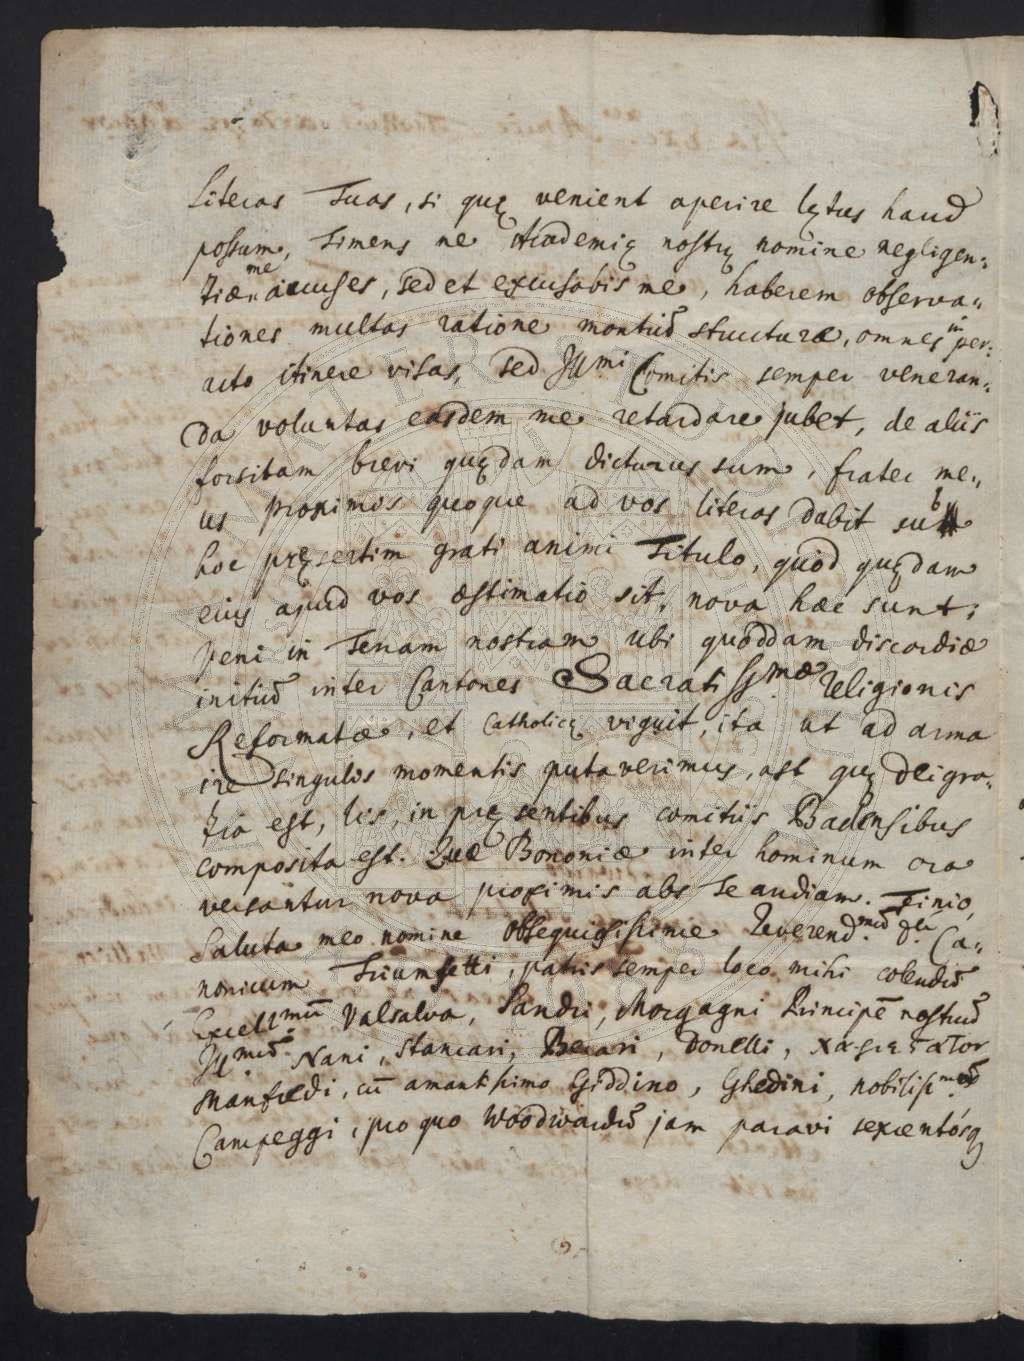 Literas Tuas, si quę venient aperire lętus haud
possum, Timens ne Academię nostrę nomine negligen-
tiæ me accuses, sed et excusabis me, haberem observa-
tiones multas ratione montiũ structuræ, omnes in per-
acto itinere visas, sed Illmi Comitis semper veneran-
da voluntas easdem me retardare jubet, de aliis
forsitam brevi quędam dicturus sum, frater me-
us proximis quoque ad vos literas dabit sub
hoc pręsertim grati animi Titulo, quod quędam
eius apud vos æstimatio sit, nova hæc sunt;
Veni in Terram nostram ubi quoddam discordiæ
initiũ inter Cantones Sacratissmæ Religionis
Reformatæ, et Catholicę viguit, ita ut ad arma
ire singulis momentis putaverimus, ast quę Dei gra-
tia est, lis, in pręsentibus comitiis Badensibus
composita est. Quæ Bononiæ inter hominum ora
versantur nova proximis abs Te audiam. Finio,
Saluta meo nomine obsequiosissime Reverend.mũ D. Ca-
nonicum Triumfetti, patris semper loco mihi colendũ
Excell.mũ Valsalva, Sandri, Morgagni Principẽ nostrũ
Ill.mũ Nani, Stancari, Beccari, Donelli,
Manfredi, cũ amantissimo Giddino, Ghedini, nobiliss.mũ
Campeggi, pro quo Woodwardũ jam paravi sexcentósq